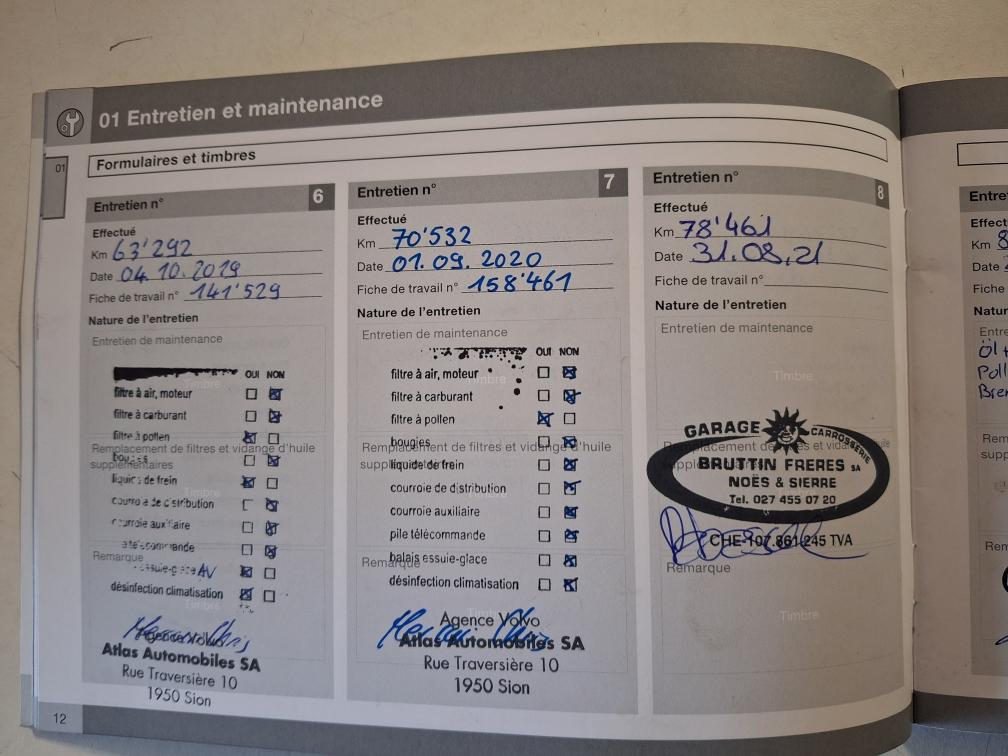 01 Entretien et maintenance
01
Formulaires et timbres
Entretien n° 6
Effectué
Km 63'292
Date 04.10.2019
Fiche de travail n° 141'529
Nature de l'entretien
Entretien de maintenance
OUI NON
Timbre
filtre à air, moteur
filtre à carburant
filtre à pollen
Remplacement de filtres et vidange d'huile
supplémentaires
bougies
liquide de frein
Timbre
courroie de distribution
courroie auxiliaire
télécommande
Remarque
essuie-glace AV
désinfection climatisation
Timbre
Agence Volvo
Atlas Automobiles SA
Rue Traversière 10
1950 Sion
Entretien n° 7
Effectué
Km 70'532
Date 01.09.2020
Fiche de travail n° 158'461
Nature de l'entretien
Entretien de maintenance
OUI NON
filtre à air, moteur
Timbre
filtre à carburant
filtre à pollen
bougies
Remplacement de filtres et vidange d'huile
supplémentaires
liquide de frein
courroie de distribution
Timbre
courroie auxiliaire
pile télécommande
balais essuie-glace
Remarque
désinfection climatisation
Timbre
Agence Volvo
Atlas Automobiles SA
Rue Traversière 10
1950 Sion
Entretien n° 8
Effectué
Km 78'461
Date 31.08.21
Fiche de travail n°
Nature de l'entretien
Entretien de maintenance
Timbre
GARAGE CARROSSERIE
Remplacement de filtres et vidange d'huile
BRUTTIN FRERES SA
NOËS & SIERRE
Tel. 027 455 07 20
CHE-107.861.245 TVA
Remarque
Timbre
12
Entre
Effect
Km 8
Date
Fiche
Natur
Entre
Öl
Poll
Brem
Rem
Rem